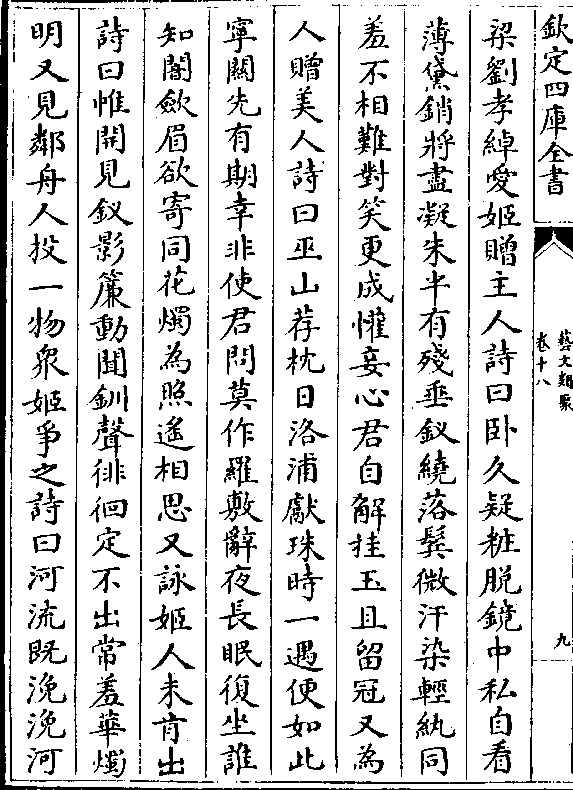 欽定四庫全書
藝文類聚
卷十八
九
梁劉孝綽愛姬贈主人詩曰卧久疑粧脱鏡中私自看
薄黛銷將盡凝朱半有殘垂釵繞落鬓微汗染輕紈同
羞不相難對笑更成懽妾心君自解挂玉且留冠又為
人贈美人詩曰巫山荐枕日洛浦獻珠時一遇便如此
寧闗先有期幸非使君問莫作羅敷辭夜長眠復坐誰
知闇歛眉欲寄同花燭為照遙相思又詠姬人未肯出
詩曰惟開見釵影簾動聞釧聲徘徊定不出常羞華燭
明又見鄰舟人投一物衆姬爭之詩曰河流既浼浼河